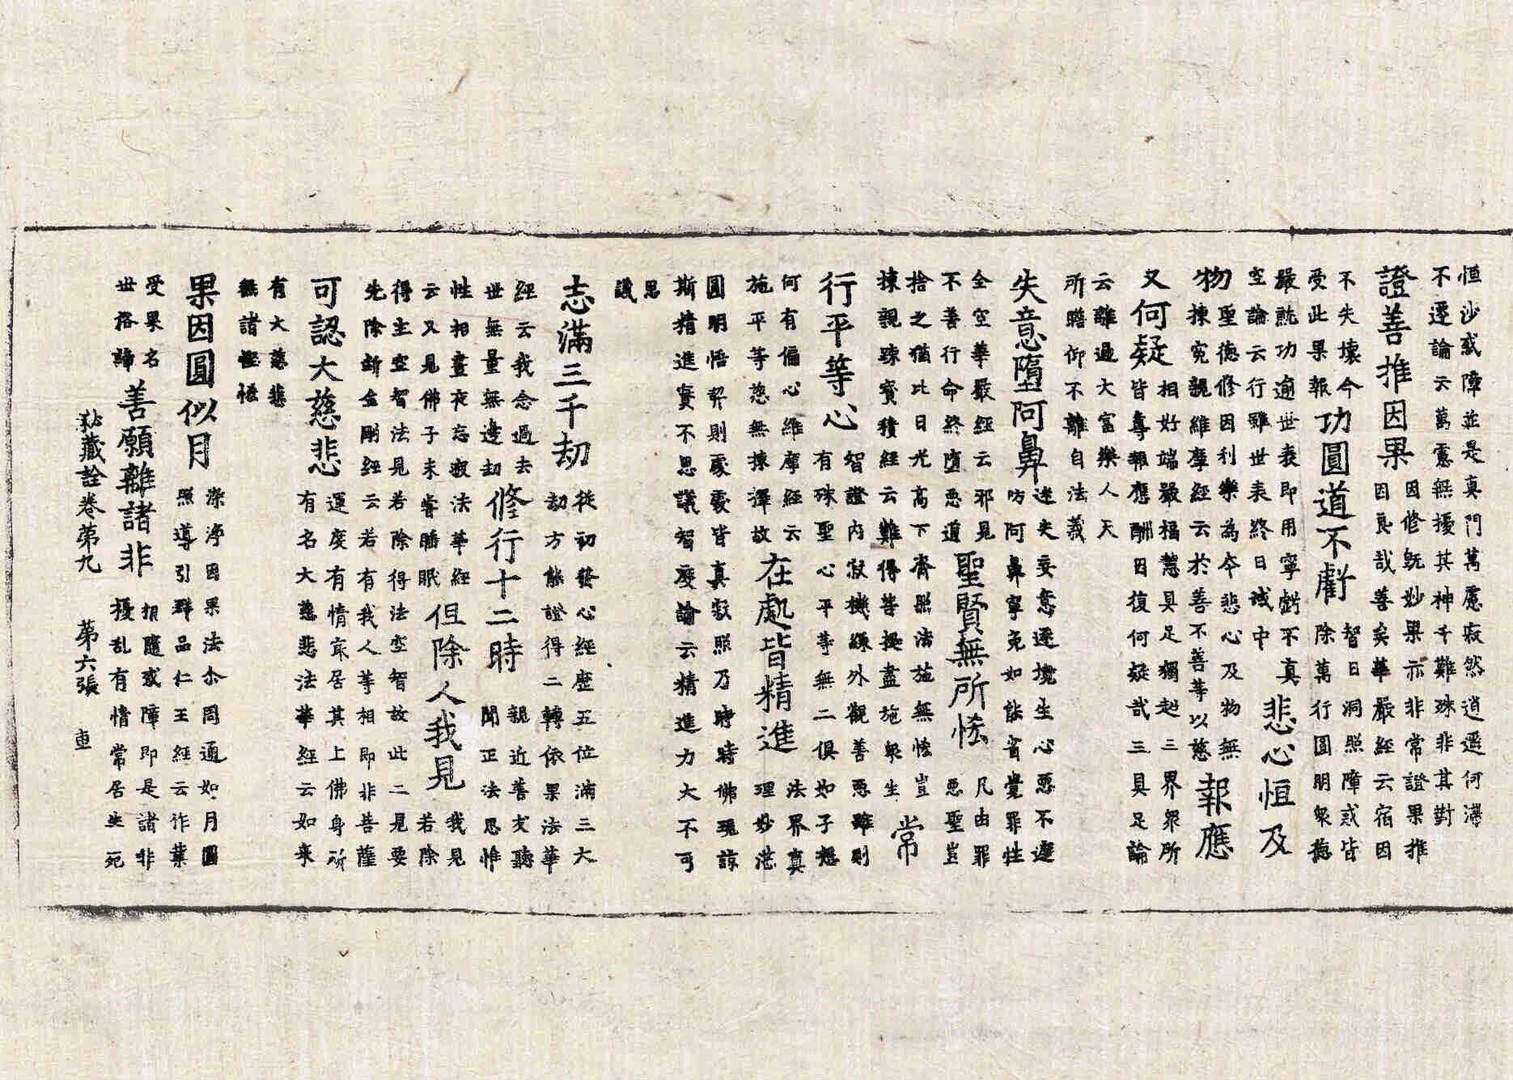 恒沙惑障並是真門萬慮寂然逍遥何滯
不遷論云萬慮無擾其神千難殊非其對
證善推因果
因修既妙果亦非常證果推
因良哉善矣華嚴經云宿因
不失壞今
受此果報
功圓道不虧
智日洞照障惑皆
除萬行圓明衆德
嚴就功逾世表即用寧虧不真
空論云行雖世表終日域中
悲心恒及
物
聖德修因利樂為本悲心及物無
揀冤親維摩經云於善不善等以慈
報應
又何疑
相好端嚴福慧具足獨超三界衆所
皆尊報應酬因復何疑哉三具足論
云離過大富樂人天
所瞻仰不離自法義
失意墮阿鼻
迷失妄意逐境生心悪不遷
坊阿鼻寧免如能省覺罪性
全空華嚴經云邪見
不善行命終墮悪道
聖賢無所恡
凡由罪
悪聖豈
捨之猶比日光高下齊照法施無恡豈
揀親疎寶積經云難得菩提盡施衆生
常
行平等心
智證内寂機緣外觀善悪雖則
有殊聖心平等無二俱如子想
何有偏心維摩經云
施平等慈無揀擇故
在處皆精進
法界真
理妙湛
圓明悟契則處處皆真寂照乃時時佛現諒
斯精進實不思議智度論云精進力大不可
思
議
志滿三千劫
從初發心經歷五位滿三大
劫方能證得二轉依果法華
經云我念過去
世無量無邊劫
修行十二時
親近善友聽
聞正法思惟
性相晝夜忘寢法華經
云又見佛子未嘗睡眠
但除人我見
我見
若除
得生空智法見若除得法空智故此二見要
先除斷金剛經云若有我人等相即非菩薩
可認大慈悲
運度有情寂居其上佛身所
有名大慈悲法華經云如来
有大慈悲
無諸慳悋
果因圓似月
潔淨因果法尒周通如月圓
照導引群品仁王經云作業
受果名
世俗諦
善願離諸非
損隨惑障即是諸非
擾乱有情常居生死
秘藏詮卷第九 第六張 車